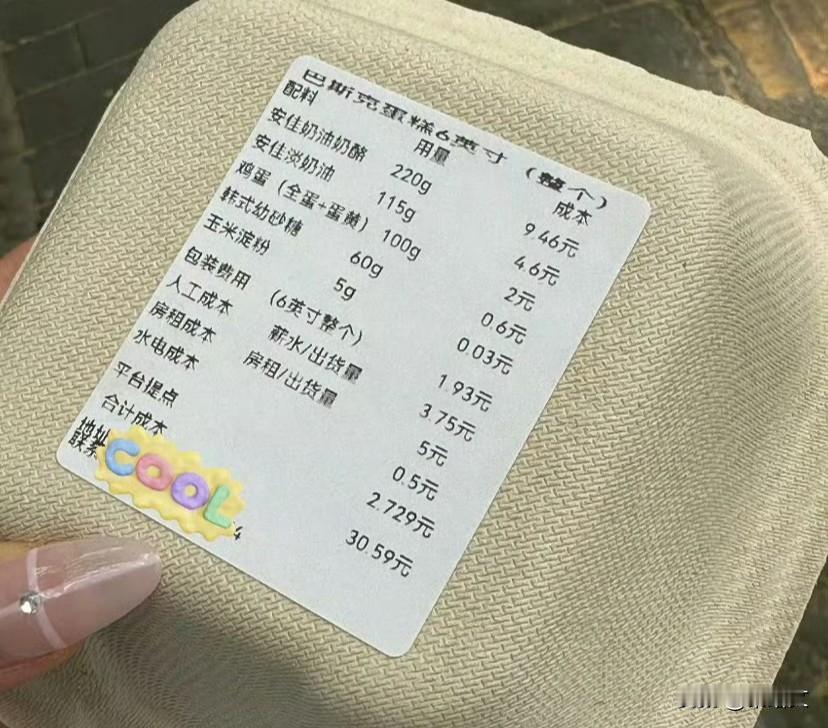 巴斯克蛋糕6英寸（整个）
配料 用量 成本
安佳奶油奶酪 220g 9.46元
安佳淡奶油 115g 4.6元
鸡蛋（全蛋+蛋黄） 100g 2元
韩式幼砂糖 60g 0.6元
玉米淀粉 5g 0.03元
包装费用 （6英寸整个） 1.93元
人工成本 薪水/出货量 3.75元
房租成本 房租/出货量 5元
水电成本 0.5元
平台提点 2.729元
合计成本 30.59元
地址
联系
COOL